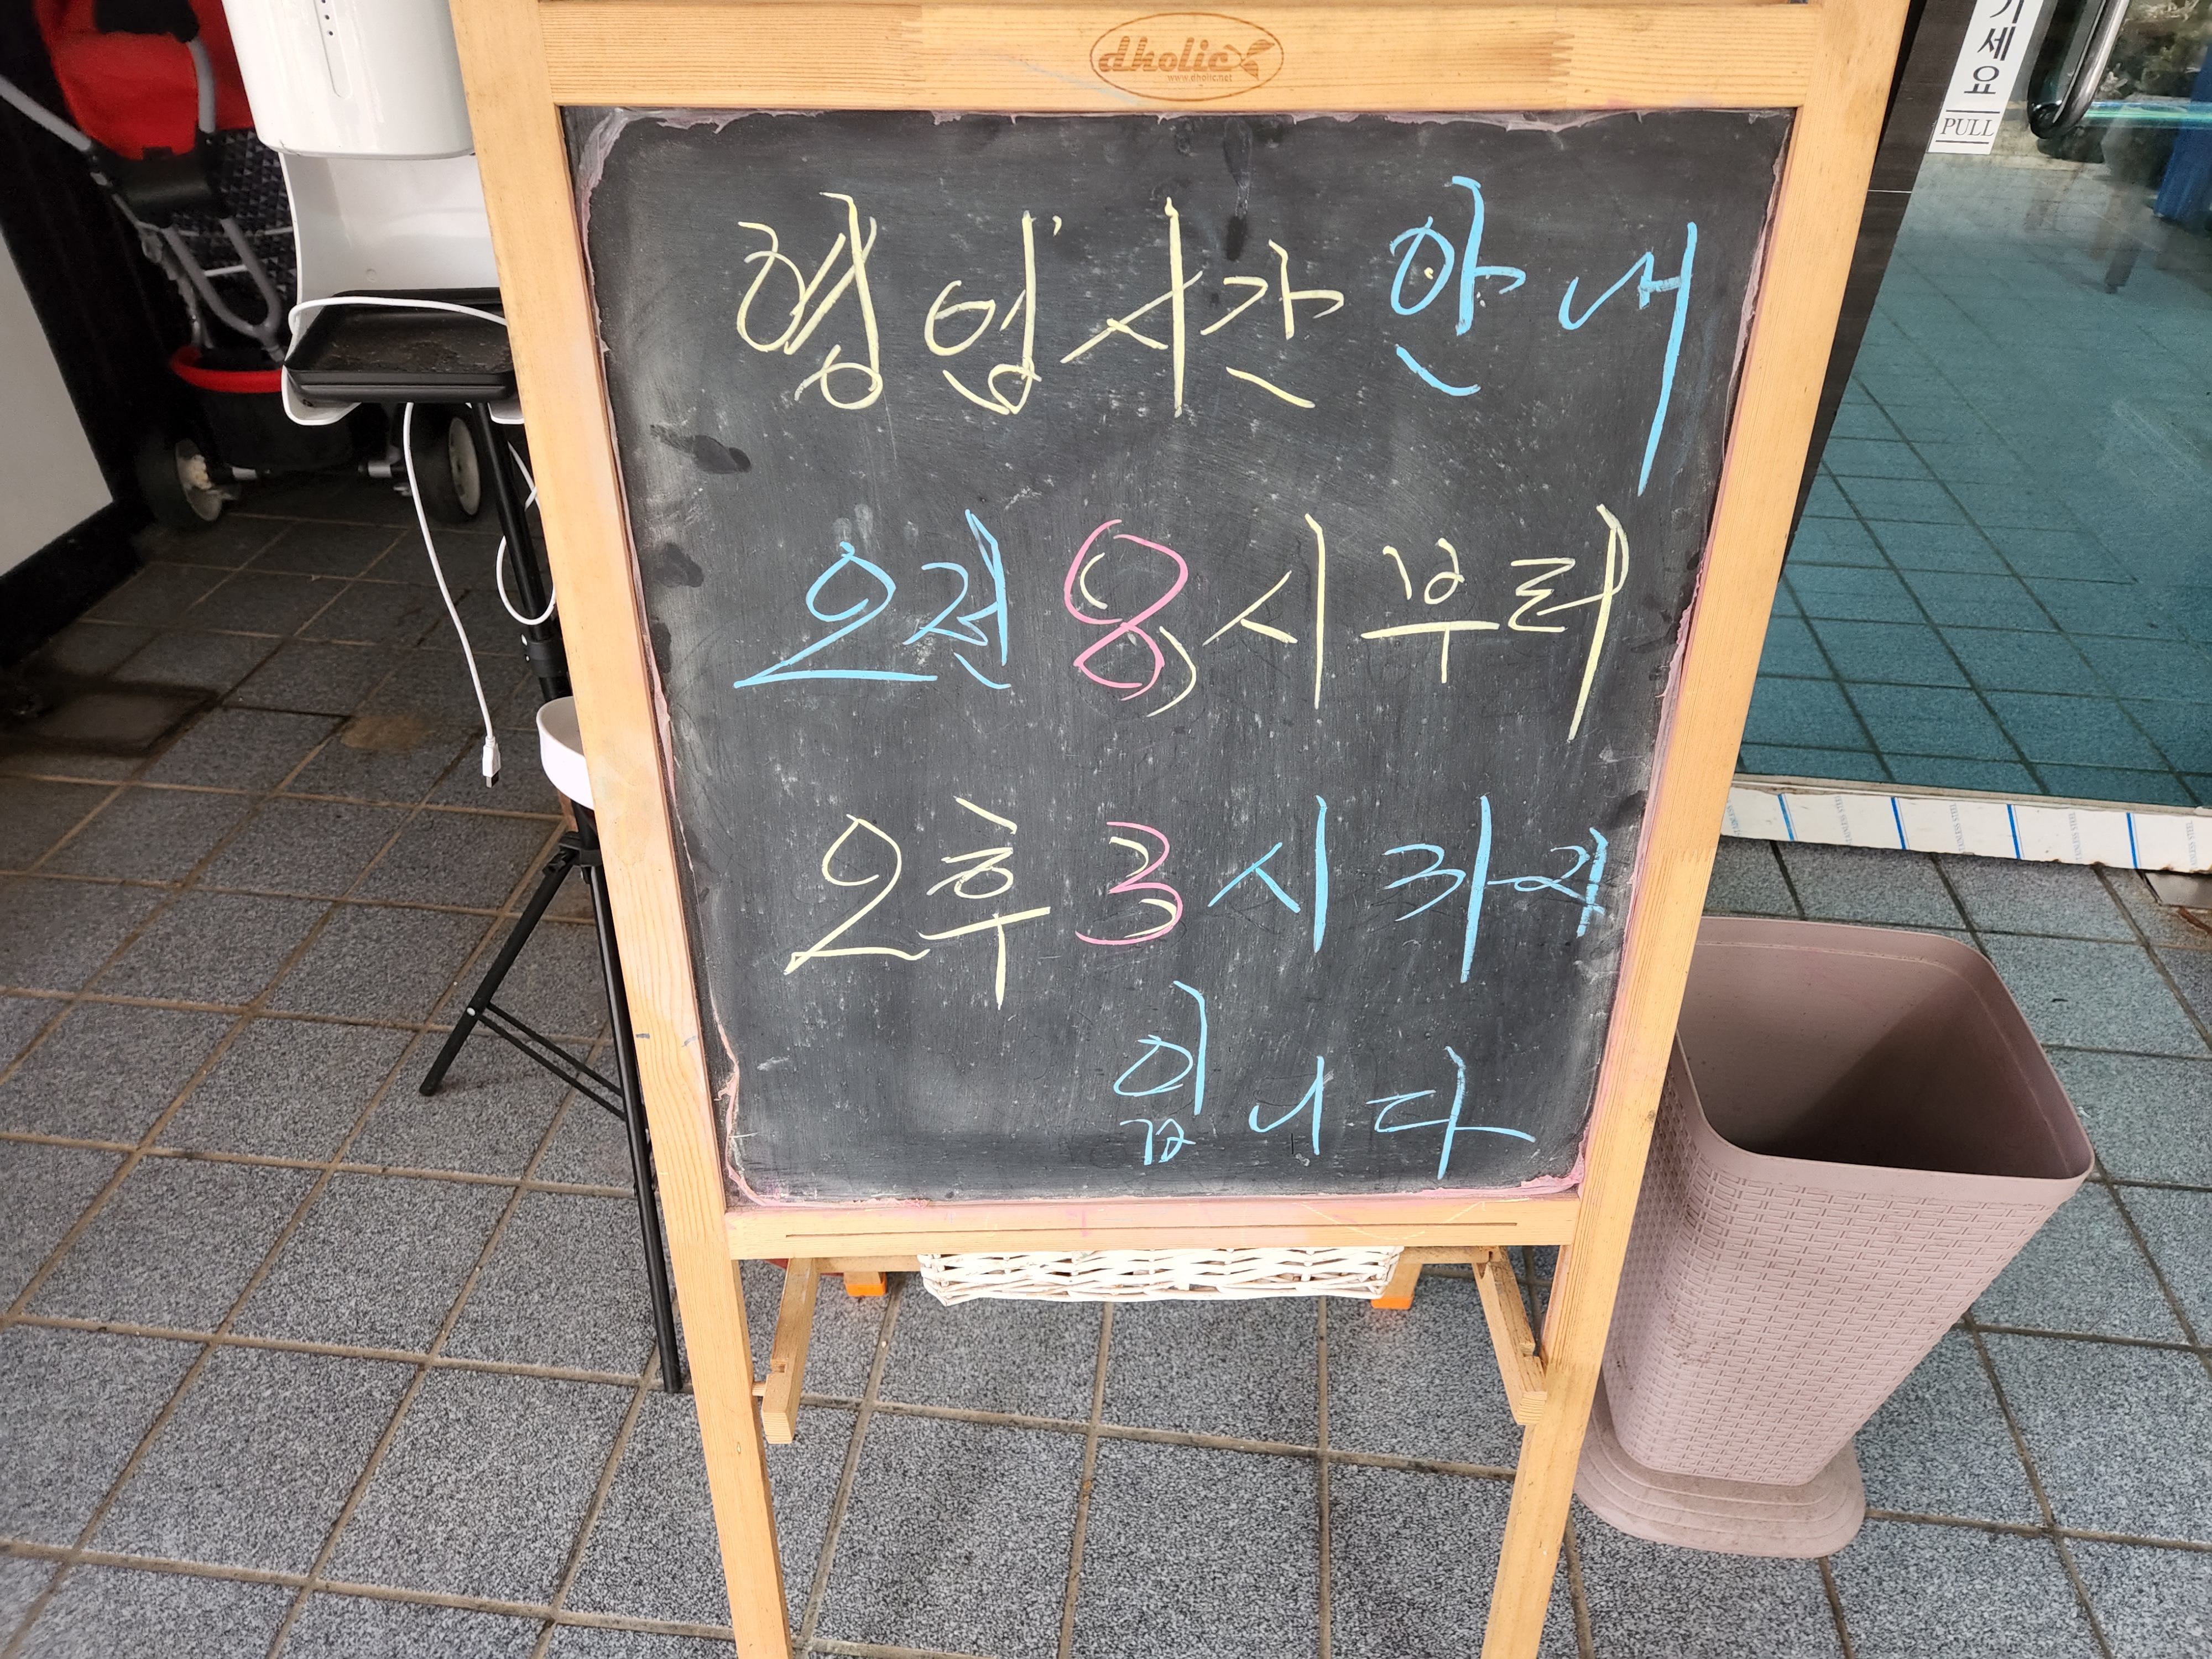 dholic
www.dholic.net
세요
PULL
영업시간 안내
오전 8시부터
오후 3시까지
입니다